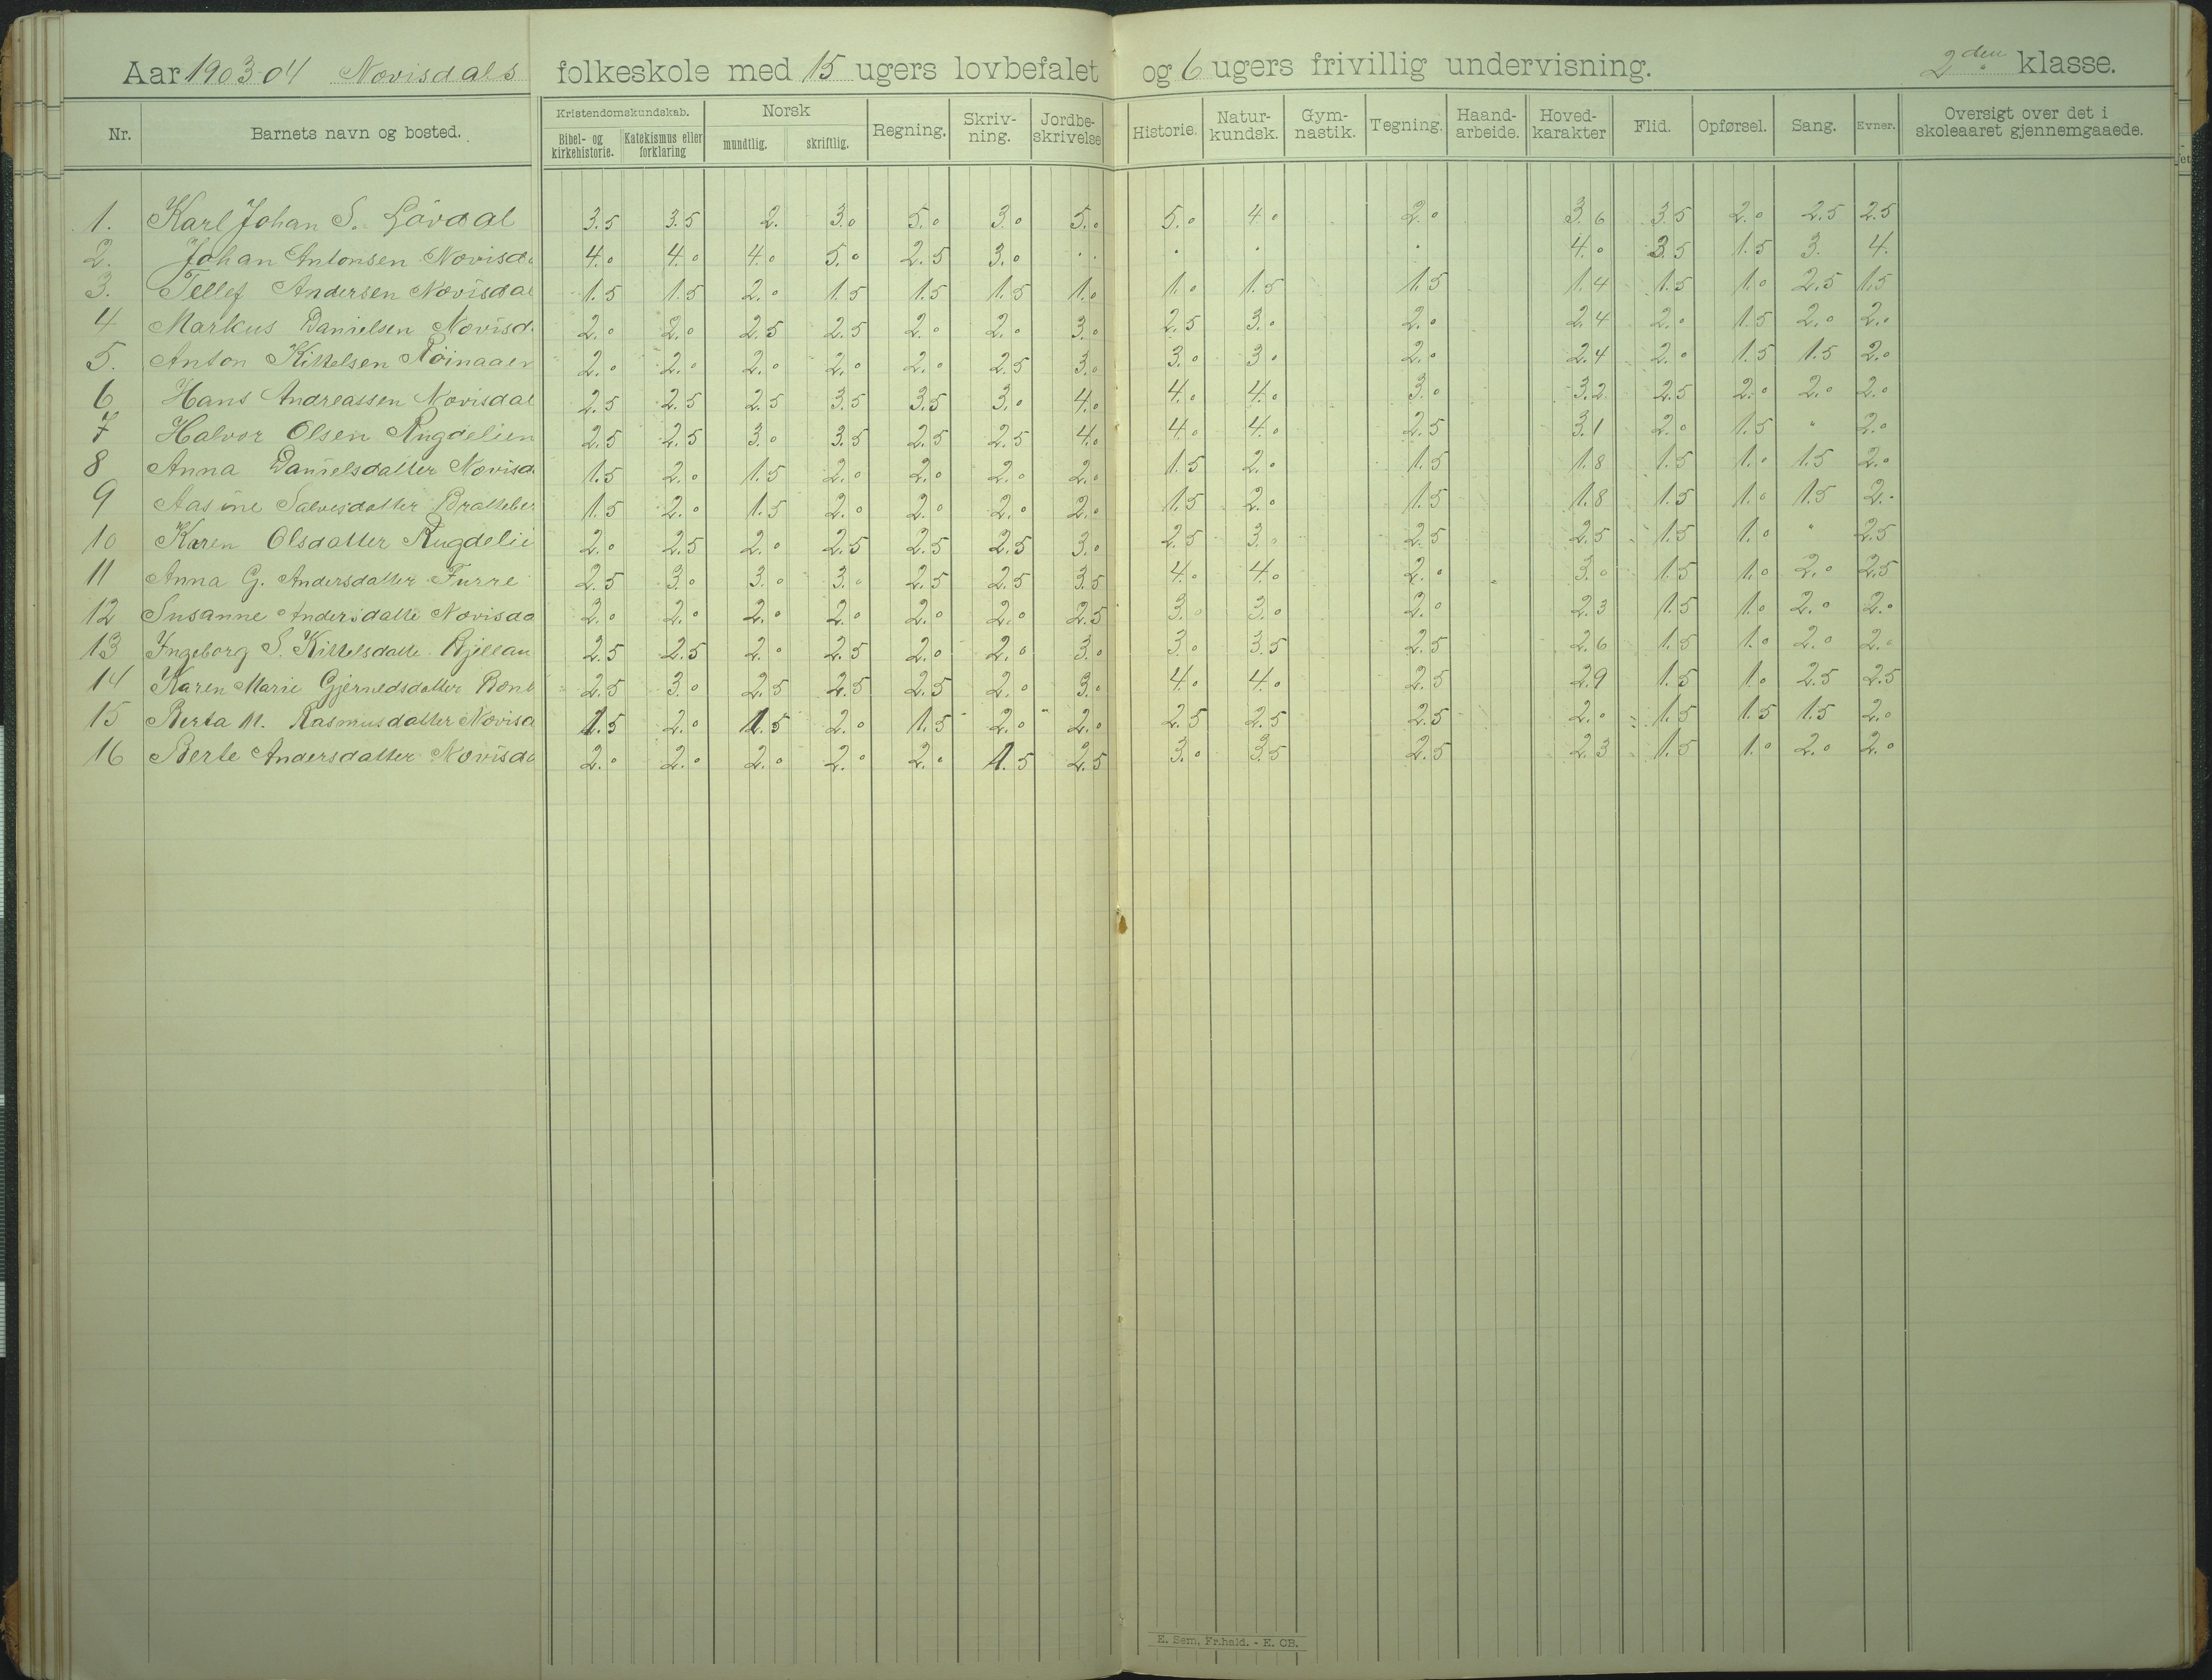 Aar 1903-04 Novisdals folkeskole med 15 ugers lovbefalet og 6 ugers frivillig undervisning. 2den klasse.
Nr. Barnets navn og bosted. Kristendomskundskab. Bibel- og kirkehistorie. Katekismus eller forklaring Norsk mundtlig. skriftlig. Regning. Skriv-ning. Jordbe-skrivelse Historie. Natur-kundsk. Gym-nastik. Tegning. Haand-arbeide. Hoved-karakter Flid. Opførsel. Sang. Evner. Oversigt over det i skoleaaret gjennemgaaede.
1. Karl Johan S. Lövdal 3.5 3.5 2. 3.0 5.0 3.0 5.0 5.0 4.0 2.0 3.6 3.5 2.0 2.5 2.5
2. Johan Antonsen Novisda 4.0 4.0 4.0 5.0 2.5 3.0 . . . . . 4.0 3.5 1.5 3. 4.
3. Tellef Andersen Novisdal 1.5 1.5 2.0 1.5 1.5 1.5 1.0 1.0 1.5 1.5 1.4 1.5 1.0 2.5 1.5
4 Markus Danielsen Novisd 2.0 2.0 2.5 2.5 2.0 2.0 3.0 2.5 3.0 2.0 2.4 2.0 1.5 2.0 2.0
5. Anton Kittelsen Röinaaen 2.0 2.0 2.0 2.0 2.0 2.5 3.0 3.0 3.0 2.0 2.4 2.0 1.5 1.5 2.0
6 Hans Andreassen Novisdal 2.5 2.5 2.5 3.5 3.5 3.0 4.0 4.0 4.0 3.0 3.2 2.5 2.0 2.0 2.0
7 Halvor Olsen Rugdelien 2.5 2.5 3.0 3.5 2.5 2.5 4.0 4.0 4.0 2.5 3.1 2.0 1.5 " 2.0
8 Anna Danielsdatter Novisd 1.5 2.0 1.5 2.0 2.0 2.0 2.0 1.5 2.0 1.5 1.8 1.5 1.0 1.5 2.0
9 Aasine Salvesdatter Bratteber 1.5 2.0 1.5 2.0 2.0 2.0 2.0 1.5 2.0 1.5 1.8 1.5 1.0 1.5 2.
10 Karen Olsdatter Rugdelie 2.0 2.5 2.0 2.5 2.5 2.5 3.0 2.5 3.0 2.5 2.5 1.5 1.0 " 2.5
11 Anna G. Andersdatter Furre 2.5 3.0 3.0 3.0 2.5 2.5 3.5 4.0 4.0 2.0 3.0 1.5 1.0 2.0 2.5
12 Susanne Andersdatte Novisda 2.0 2.0 2.0 2.0 2.0 2.0 2.5 3.0 3.0 2.0 2.3 1.5 1.0 2.0 2.0
13 Ingeborg S. Kittelsdatte Kjellan 2.5 2.5 2.0 2.5 2.0 2.0 3.0 3.0 3.5 2.5 2.6 1.5 1.0 2.0 2.0
14 Karen Marie Gjernedsdatter 2.5 3.0 2.5 2.5 2.5 2.0 3.0 4.0 4.0 2.5 2.9 1.5 1.0 2.5 2.5
15 Berta M. Rasmusdatter Novisd 1.5 2.0 1.5 2.0 1.5 2.0 2.0 2.5 2.5 2.5 2.0 1.5 1.5 1.5 2.0
16 Berte Andersdatter Novisda 2.0 2.0 2.0 2.0 2.0 1.5 2.5 3.0 3.5 2.5 2.3 1.5 1.0 2.0 2.0
E. Sem, Fr.hald. - E. OB.